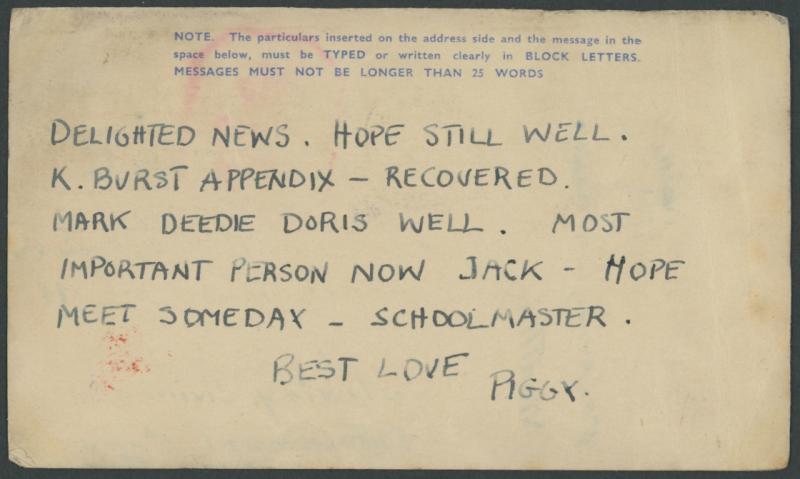 NOTE. The particulars inserted on the address side and the message in the
space below, must be TYPED or written clearly in BLOCK LETTERS.
MESSAGES MUST NOT BE LONGER THAN 25 WORDS
DELIGHTED NEWS. HOPE STILL WELL.
K. BURST APPENDIX – RECOVERED.
MARK DEEDIE DORIS WELL. MOST
IMPORTANT PERSON NOW JACK – HOPE
MEET SOMEDAY – SCHOOLMASTER.
BEST LOVE PIGGY.